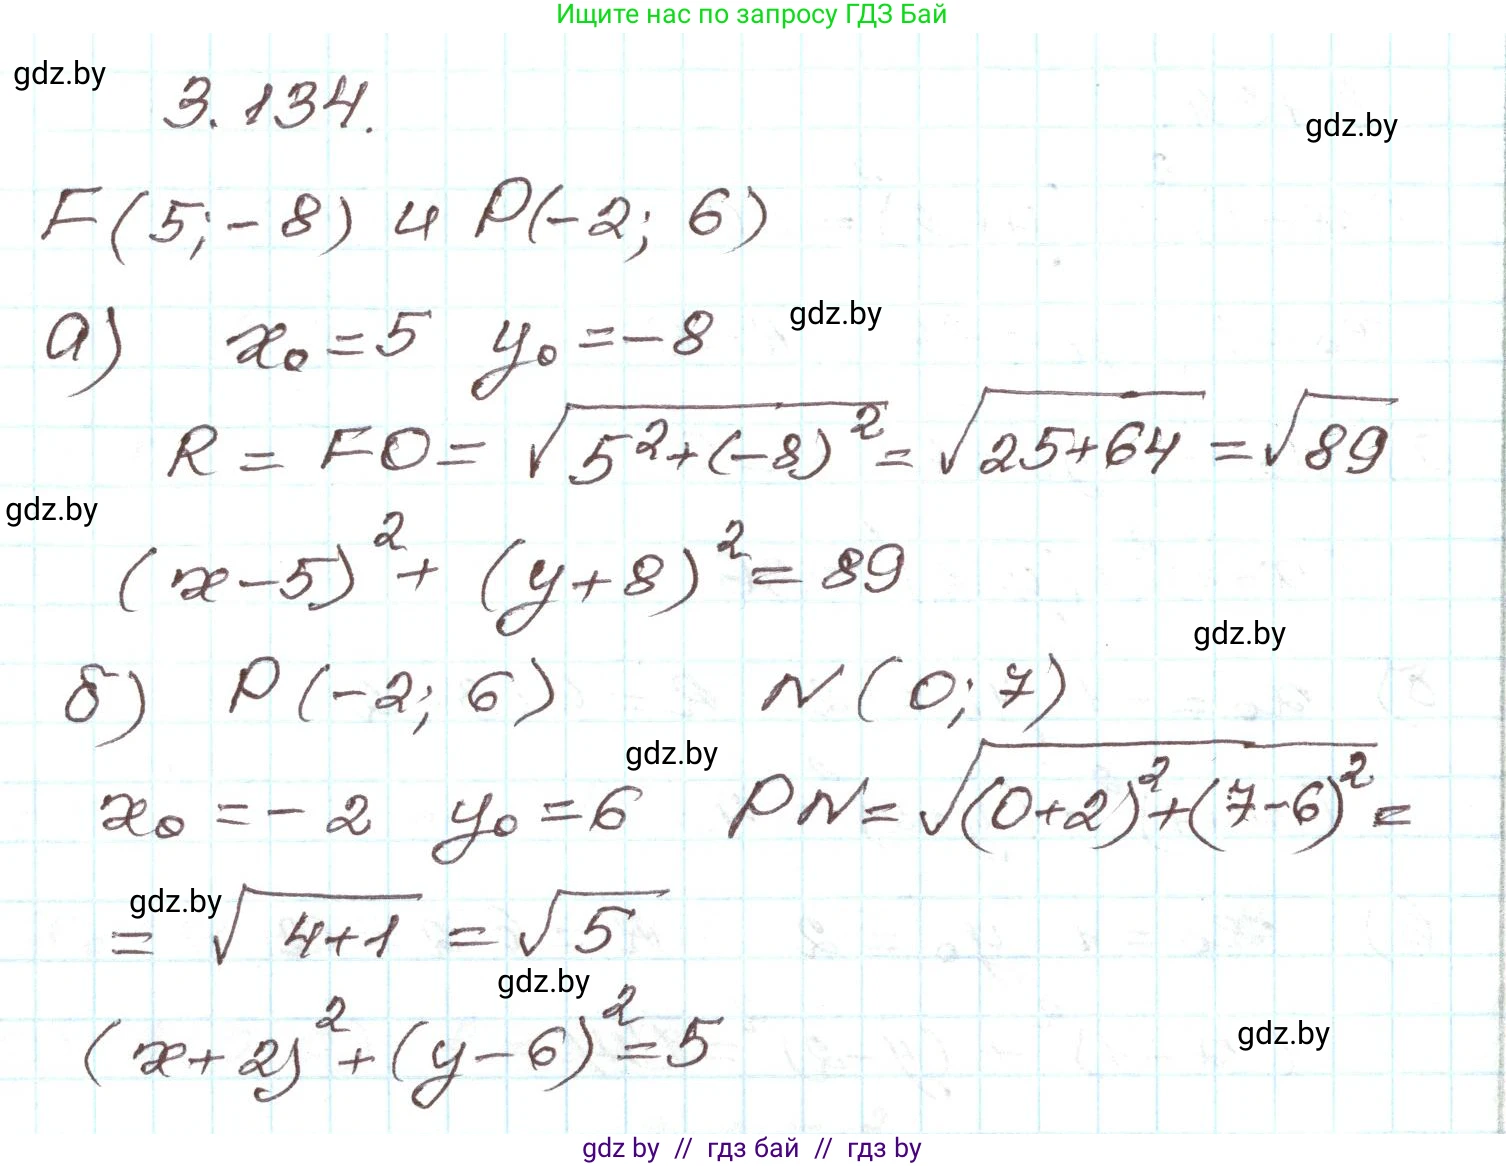 Ищите нас по запросу ГДЗ Бай
gdz.by
3.134.
gdz.by
F(5;-8) и P(-2; 6)
gdz.by
а) x₀=5 y₀=-8
R = FO = √(5²+(-8)²) = √(25+64) = √89
gdz.by
(x-5)²+(y+8)²=89
gdz.by
б) P(-2; 6) N(0; 7)
gdz.by
x₀=-2 y₀=6 PN=√((0+2)²+(7-6)²)=
gdz.by
= √(4+1) = √5
gdz.by
(x+2)²+(y-6)²=5
gdz.by
gdz by // гдз бай // гдз by